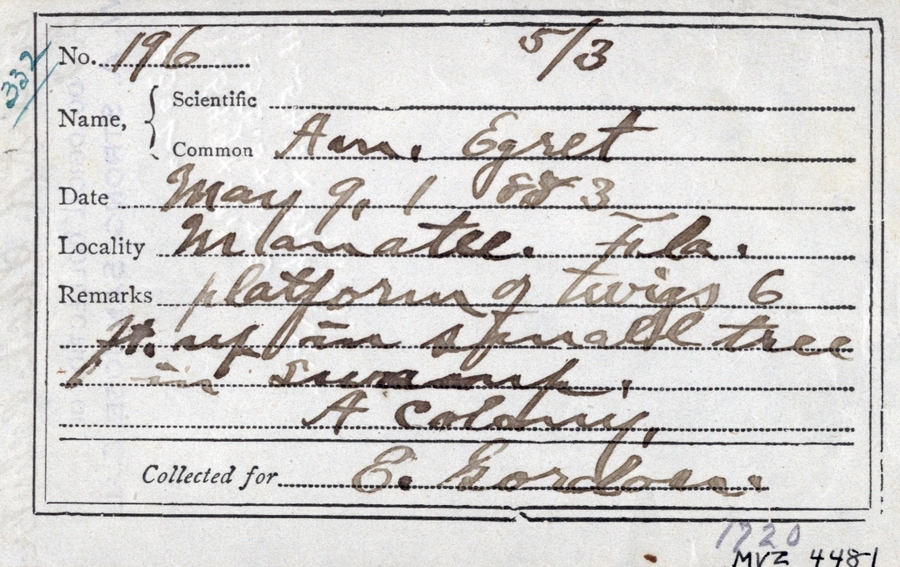 332
No. 196 5/3
Name, Scientific
Common Am. Egret
Date May 9, 1883
Locality Manatee. Fla.
Remarks platform of twigs 6
ft. up in small tree
in swamp.
A Colony,
Collected for E. Gordon.
1720
MVZ 4481